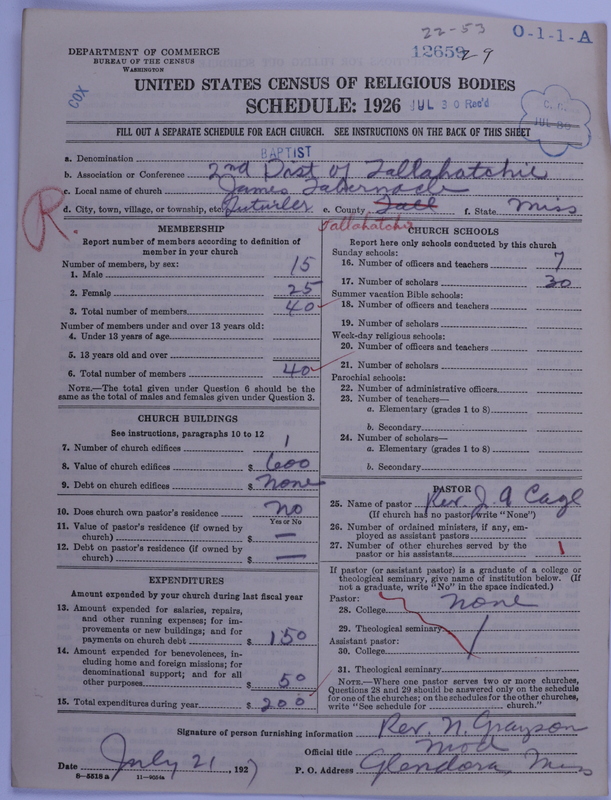 22-53 O-1-1-A
12659 29
DEPARTMENT OF COMMERCE
BUREAU OF THE CENSUS
WASHINGTON
COX
UNITED STATES CENSUS OF RELIGIOUS BODIES
SCHEDULE: 1926 JUL 30 Rec'd
FILL OUT A SEPARATE SCHEDULE FOR EACH CHURCH. SEE INSTRUCTIONS ON THE BACK OF THIS SHEET
a. Denomination BAPTIST
b. Association or Conference 2nd Dist of Tallahatchie
c. Local name of church James Tabernacle
d. City, town, village, or township, etc. e. County Tall f. State Miss
R. Tallahatchie
MEMBERSHIP
Report number of members according to definition of
member in your church
Number of members, by sex:
1. Male 15
2. Female 25
3. Total number of members 40
Number of members under and over 13 years old:
4. Under 13 years of age
5. 13 years old and over
6. Total number of members 40
NOTE.—The total given under Question 6 should be
same as the total of males and females given under Question 3.
CHURCH BUILDINGS
See instructions, paragraphs 10 to 12
7. Number of church edifices 1
8. Value of church edifices $ 600
9. Debt on church edifices $ None
10. Does church own pastor's residence? no
Yes or No
11. Value of pastor's residence (if owned by
church) $ —
12. Debt on pastor's residence (if owned by
church) $ —
EXPENDITURES
Amount expended by your church during last fiscal year
13. Amount expended for salaries, repairs,
and other running expenses; for im-
provements or new buildings; and for
payments on church debt $ 150
14. Amount expended for benevolences, in-
cluding home and foreign missions; for
denominational support; and for all
other purposes $ 50
15. Total expenditures during year $ 200
CHURCH SCHOOLS
Report here only schools conducted by this church
Sunday schools:
16. Number of officers and teachers 7
17. Number of scholars 30
Summer vacation Bible schools:
18. Number of officers and teachers
19. Number of scholars
Week-day religious schools:
20. Number of officers and teachers
21. Number of scholars
Parochial schools:
22. Number of administrative officers
23. Number of teachers—
a. Elementary (grades 1 to 8)
b. Secondary
24. Number of scholars—
a. Elementary (grades 1 to 8)
b. Secondary
PASTOR
25. Name of pastor Rev. J. A Cage
(If church has no pastor, write "None")
26. Number of ordained ministers, if any, em-
ployed as assistant pastors
27. Number of other churches served by the
pastor or his assistants 1
If pastor (or assistant pastor) is a graduate of a college or
theological seminary, give name of institution below. (If
not a graduate, write "No" in the space indicated.)
Pastor: none
28. College
29. Theological seminary
Assistant pastor:
30. College
31. Theological seminary
NOTE.—Where one pastor serves two or more churches,
Questions 28 and 29 should be answered only on the schedule
for one of the churches; on the schedules for the other churches,
write "See schedule for church."
Signature of person furnishing information Rev. N. Grayson
Official title Mod
Date July 21, 1927 P. O. Address Glendora, Miss
8-5518a 11-4054a